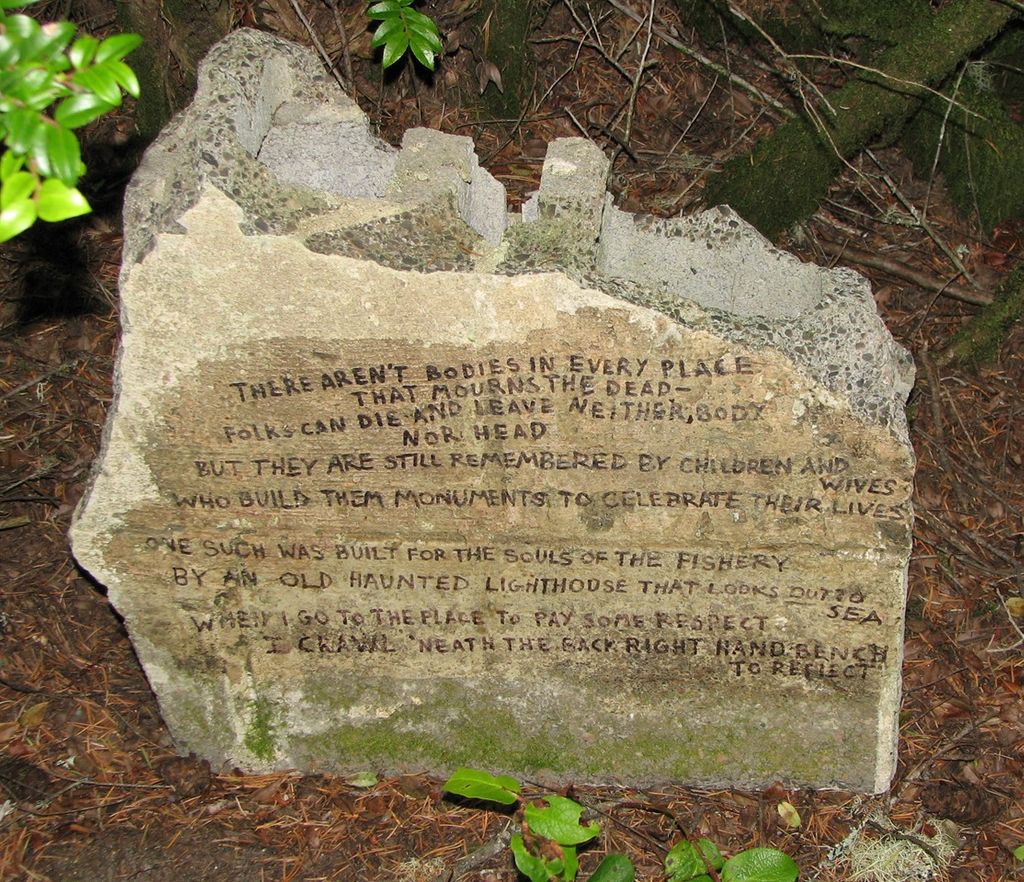 THERE AREN'T BODIES IN EVERY PLACE
THAT MOURNS THE DEAD-
FOLKS CAN DIE AND LEAVE NEITHER, BODY
NOR HEAD
BUT THEY ARE STILL REMEMBERED BY CHILDREN AND
WIVES
WHO BUILD THEM MONUMENTS TO CELEBRATE THEIR LIVES
ONE SUCH WAS BUILT FOR THE SOULS OF THE FISHERY
BY AN OLD HAUNTED LIGHTHOUSE THAT LOOKS OUT TO
SEA
WHEN I GO TO THE PLACE TO PAY SOME RESPECT
I CRAWL 'NEATH THE BACK RIGHT HAND BENCH
TO REFLECT